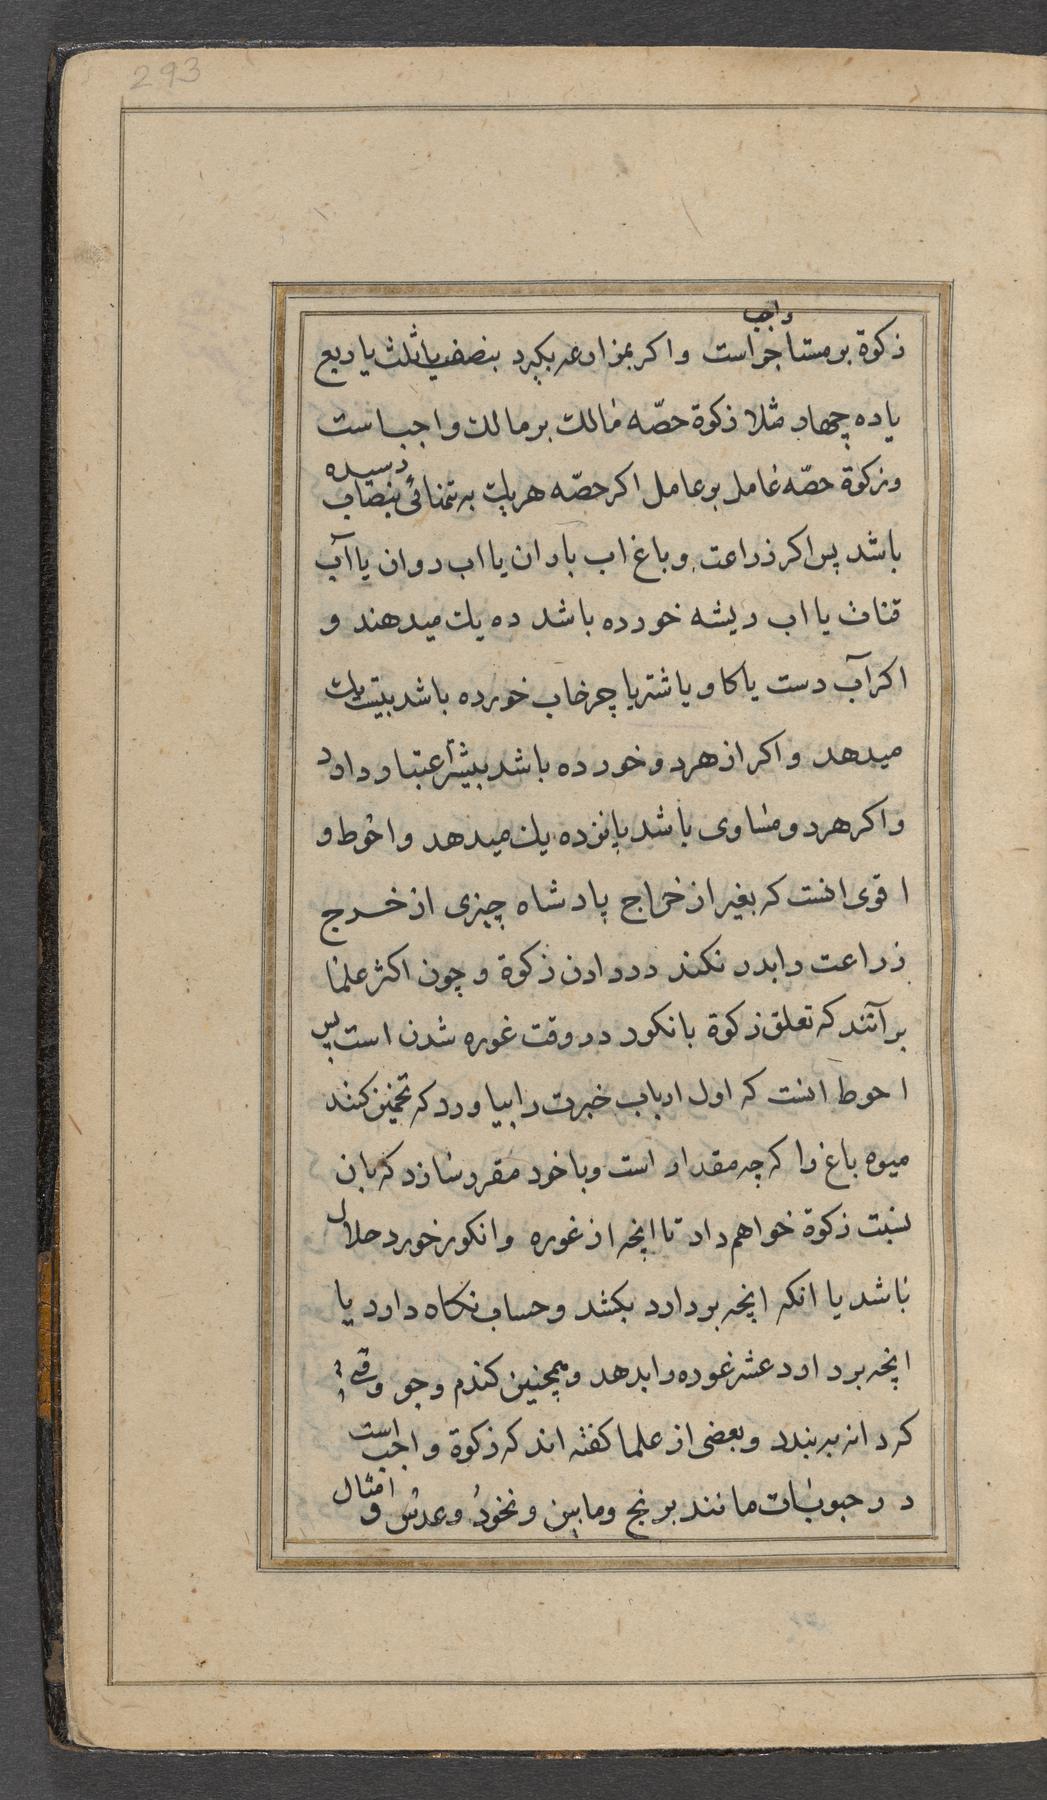 293
زكوة بر مستأجر واجب است و اكر بمزارعه بكيرد بنصف يا ثلث يا ربع
يا ده چهار مثلا زكوة حصّه مالك بر مالك واجب است
و زكوة حصّه عامل بر عامل اكر حصّه هر يك به تنهائى بنصاب رسيده
باشد پس اكر زراعت و باغ اب باران يا اب روان يا آب
قنات يا اب ريشه خورده باشد ده يك ميدهند و
اكر آب دست يا كاو يا شتر يا چرخاب خورده باشد بيست يك
ميدهد و اكر از هر دو خورده باشد بيشتر اعتبار دارد
و اكر هر دو مساوى باشد پانزده يك ميدهد و احوط و
اقوى انست كه بغير از خراج پادشاه چيزى از خرج
زراعت را بدر نكند در دادن زكوة و چون اكثر علما
بر آنند كه تعلق زكوة بانكور در وقت غوره شدن است پس
احوط انست كه اول ارباب خبرت را بياورد كه تخمين كنند
ميوه باغ را كه چه مقدار است و با خود مقرر سازد كه بان
نسبت زكوة خواهم داد تا انچه از غوره و انكور خورد حلال
باشد يا انكه انچه بردارد بكشد و حساب نكاه دارد يا
انچه بردارد عشر غوره را بدهد و همچنين كندم و جو وقتى
كه دانه به بندد و بعضى از علما كفته اند كه زكوة واجب است
در حبوبات مانند برنج و ماش و نخود و عدس و امثال